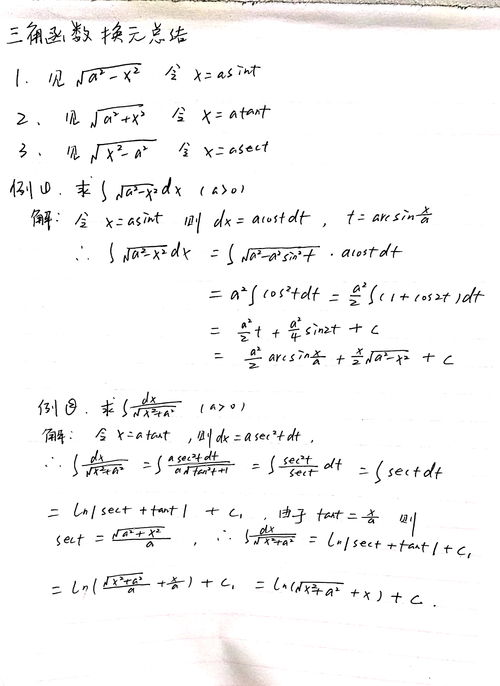 三角函数换元总结
1. 见 √(a²-x²) 令 x=asint
2、 见 √(a²+x²) 令 x=atant
3、 见 √(x²-a²) 令 x=asect
例①. 求 ∫√(a²-x²)dx (a>0)
解: 令 x=asint 则 dx=acostdt, t=arcsin x/a
∴ ∫√(a²-x²)dx = ∫√(a²-a²sin²t) · acostdt
= a²∫cos²tdt = a²/2 ∫(1+cos2t)dt
= a²/2 t + a²/4 sin2t + C
= a²/2 arcsin x/a + x/2 √(a²-x²) + C
例②. 求 ∫dx/√(x²+a²) (a>0)
解: 令 x=atant, 则 dx=asec²tdt,
∴ ∫dx/√(x²+a²) = ∫asec²tdt/(a√(tan²t+1)) = ∫sec²t/sect dt = ∫sectdt
= ln|sect+tant| + C₁, 由于 tant=x/a 则
sect = √(a²+x²)/a, ∴ ∫dx/√(x²+a²) = ln|sect+tant|+C₁
= ln(√(x²+a²)/a + x/a) + C₁ = ln(√(x²+a²) + x) + C.